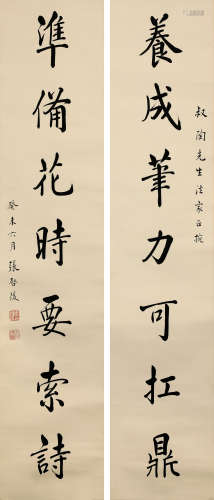 養成筆力可扛鼎
叔陶先生法家正捥
準備花時要索詩
癸未六月 張啓後